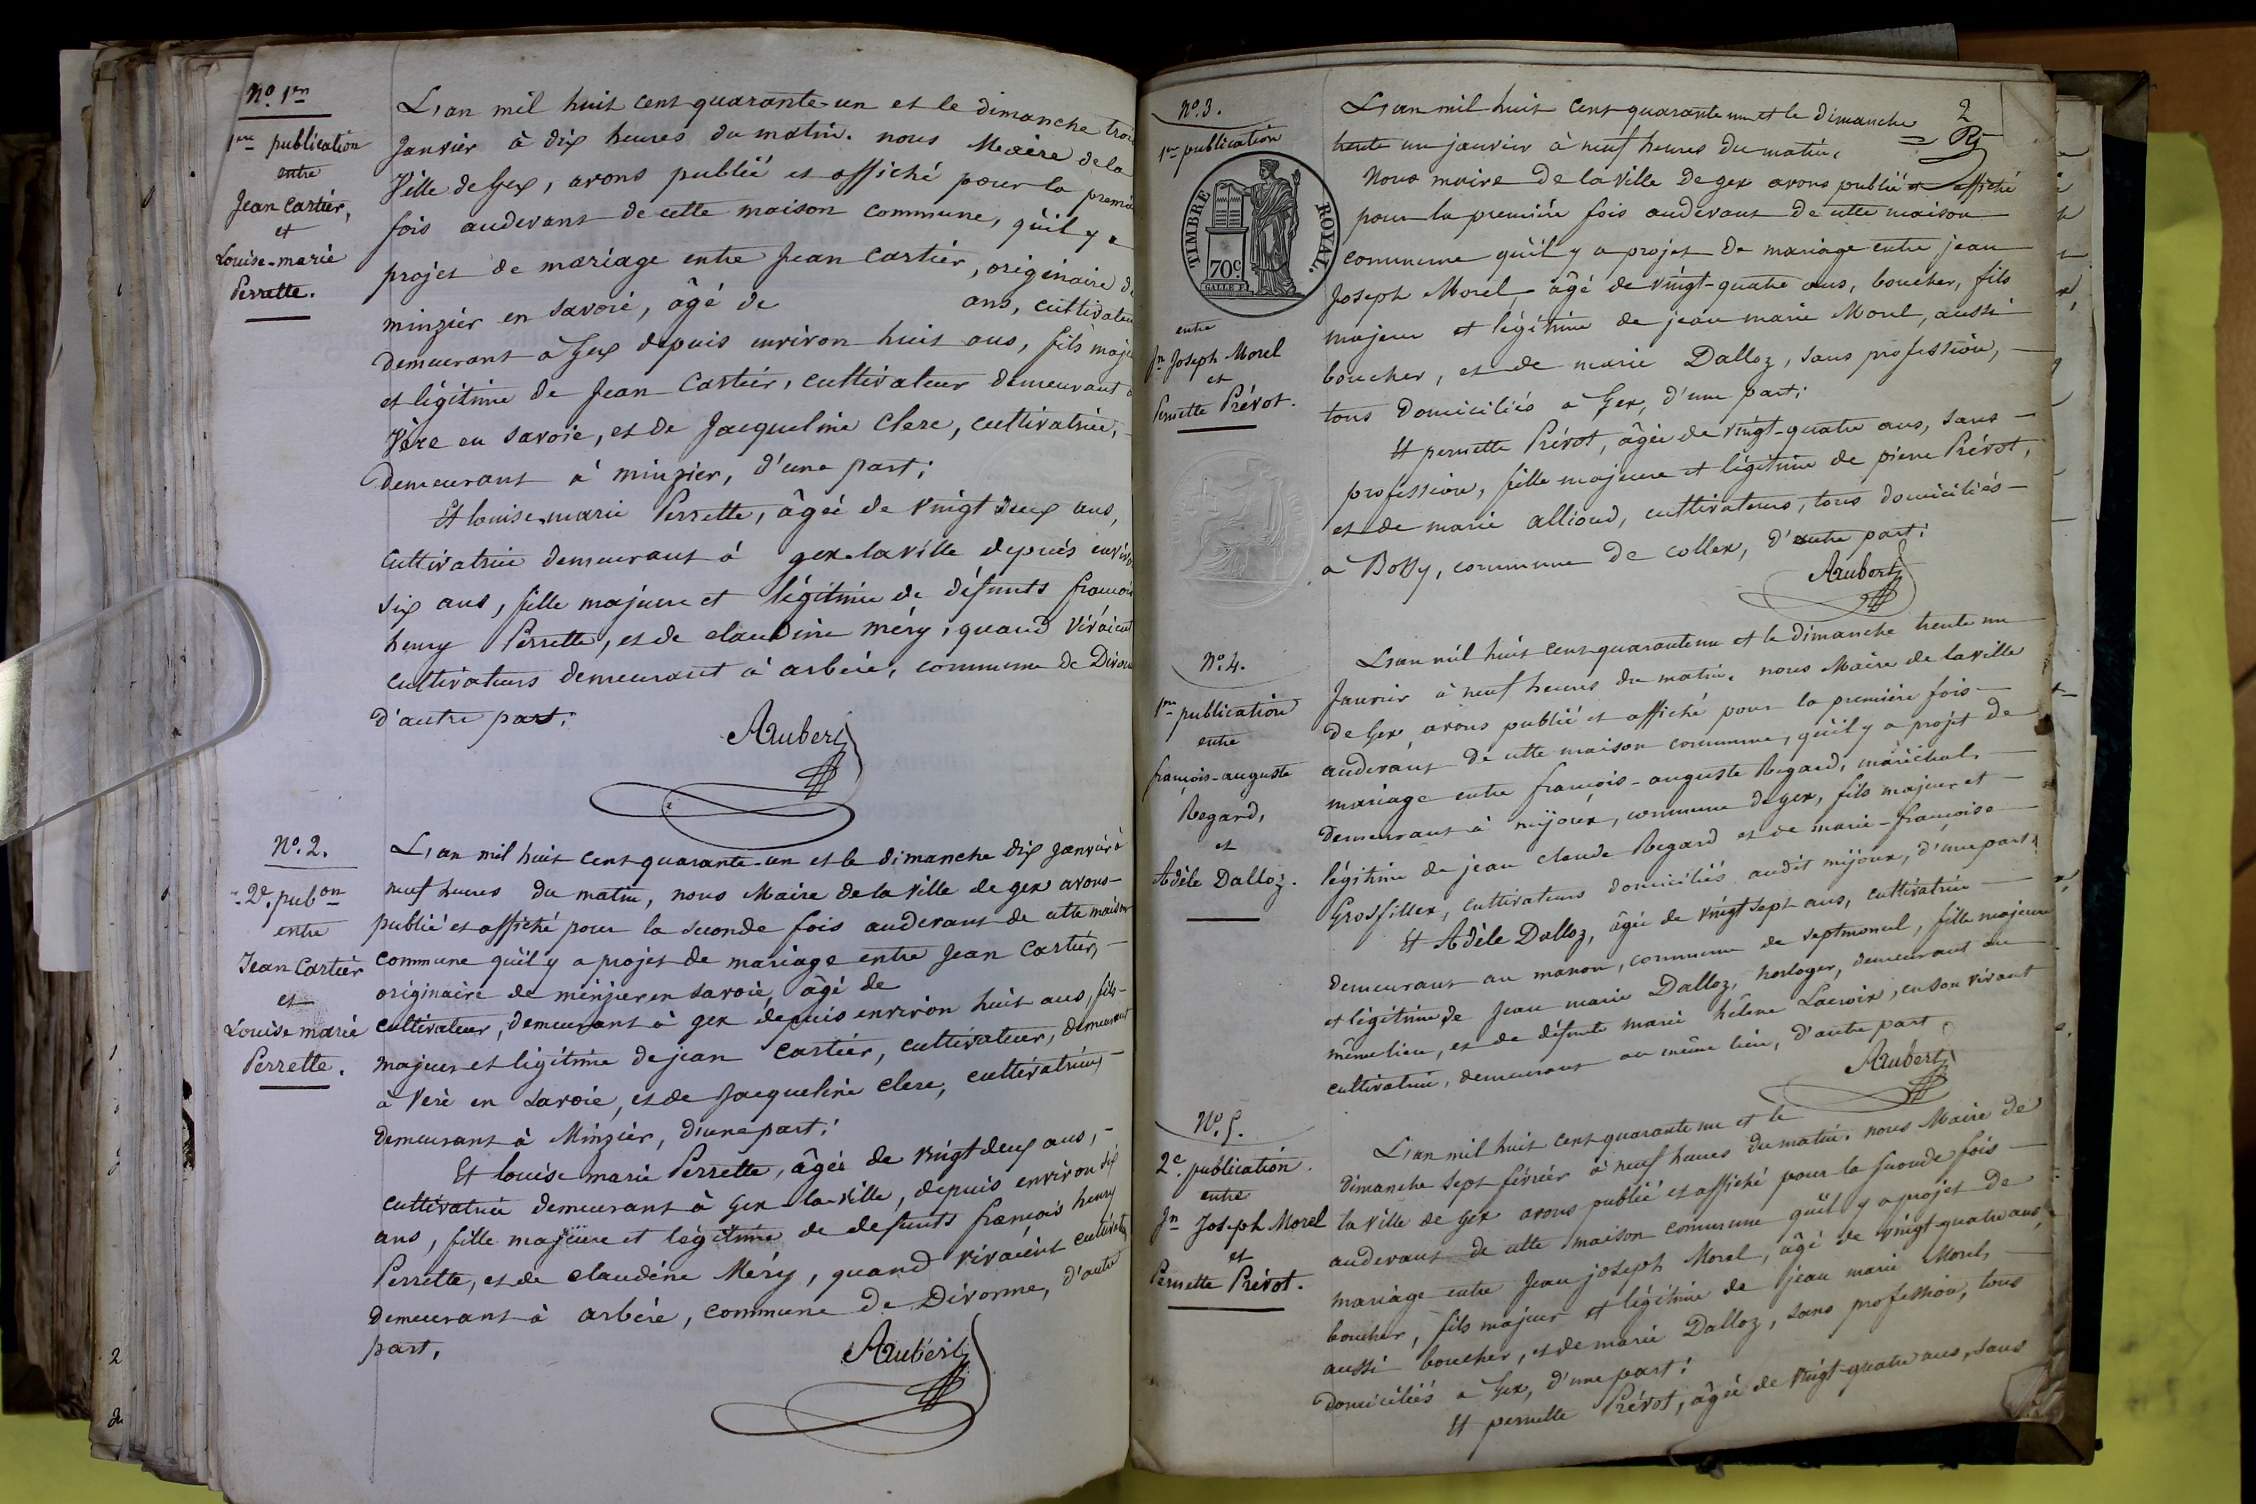 No. 1er
1ere publication
entre
Jean Cartier,
et
Louise-marie
Perrette.
L'an mil huit cent quarante-un et le dimanche trois
Janvier à dix heures du matin. nous Maire de la
Ville de Gex, avons publié et affiché pour la premiè
fois audevant de cette maison commune, qu'il y a
projet de mariage entre Jean Cartier, originaire de
minzier en savoie, âgé de ans, cultivateur
demeurant à Gex depuis environ huit ans, fils majeu
et légitime de Jean Cartier, cultivateur demeurant à
Vère en savoie, et de Jacqueline Clerc, cultivatrice,
demeurant à minzier, d'une part;
Et louise-marie Perrette, âgée de vingt deux ans,
cultivatrice demeurant à gex-la ville depuis enviro
six ans, fille majeure et légitime de défunts françois
henry Perrette, et de claudine méry, quand vivaient
cultivateurs demeurant à arbère, commune de Divonn
d'autre part.
Aubert
No. 2.
2e. pubon
entre
Jean Cartier
et
Louise marie
Perrette.
L'an mil huit cent quarante-un et le dimanche dix janvier à
neuf heures du matin, nous Maire de la ville de gex avons
publié et affiché pour la seconde fois audevant de cette maison
commune qu'il y a projet de mariage entre Jean Cartier,
originaire de minzier en savoie, âgé de
cultivateur, demeurant à gex depuis environ huit ans, fils
majeur et légitime de jean Cartier, cultivateur, demeurant
à Verè en savoie, et de Jacqueline Clerc, cultivatrice,
demeurant à Minzier, d'une part;
Et louise marie Perrette, âgée de vingt deux ans,
cultivatrice demeurant à Gex-la-ville, depuis environ six
ans, fille majeure et légitime de defunts françois henry
Perrette, et de claudine Méry, quand vivaient cultivat
demeurant à arbère, commune de Divonne, d'autre
part.
Aubert
2
No. 3.
1re publication
TIMBRE ROYAL.
70c.
entre
Jn Joseph Morel
et
Pernette Prévot.
L'an mil huit cent quarante un et le dimanche
trente un janvier à neuf heures du matin.
Nous maire de la ville de gex avons publié et affiché
pour la première fois audevant de cette maison
commune qu'il y a projet de mariage entre jean
Joseph Morel, âgé de vingt-quatre ans, boucher, fils
majeur et légitime de jean marie Morel, aussi
boucher, et de marie Dalloz, sans profession,
tous domiciliés à Gex, d'une part;
Et pernette Prévot, âgée de vingt-quatre ans, sans
profession, fille majeure et légitime de pierre Prévot,
et de marie allioud, cultivateurs, tous domiciliés
à Bossy, commune de collex, d'autre part;
Aubert
No. 4.
1re publication
entre
françois-auguste
Regard,
et
Adèle Dalloz.
L'an mil huit cent quarante un et le dimanche trente un
Janvier à neuf heures du matin. nous Maire de la ville
de Gex, avons publié et affiché pour la première fois
audevant de cette maison commune, qu'il y a projet de
mariage entre françois-auguste Regard, maréchal,
demeurant à mijoux, commune de gex, fils majeur et
légitime de jean claude Regard et de marie-françoise
Grosfillex, cultivateurs domiciliés audit mijoux, d'une part;
Et Adèle Dalloz, âgée de vingt sept ans, cultivatrice
demeurant au manon, commune de septmoncel, fille majeure
et légitime de Jean marie Dalloz, horloger, demeurant au
même lieu, et de défunte marie hélène Lacroix, en son vivant
cultivatrice, demeurant au même lieu, d'autre part.
Aubert
No. 5.
2e. publication.
entre
Jn Joseph Morel
et
Pernette Prévot.
L'an mil huit cent quarante un et le
dimanche sept février à neuf heures du matin. nous Maire de
la ville de Gex avons publié et affiché pour la seconde fois
audevant de cette maison commune qu'il y a projet de
mariage entre Jean joseph Morel, âgé de vingt-quatre ans,
boucher, fils majeur et légitime de jean marie Morel,
aussi boucher, et de marie Dalloz, sans profession, tous
domiciliés à Gex, d'une part;
Et pernette Prévot, âgée de vingt-quatre ans, sans